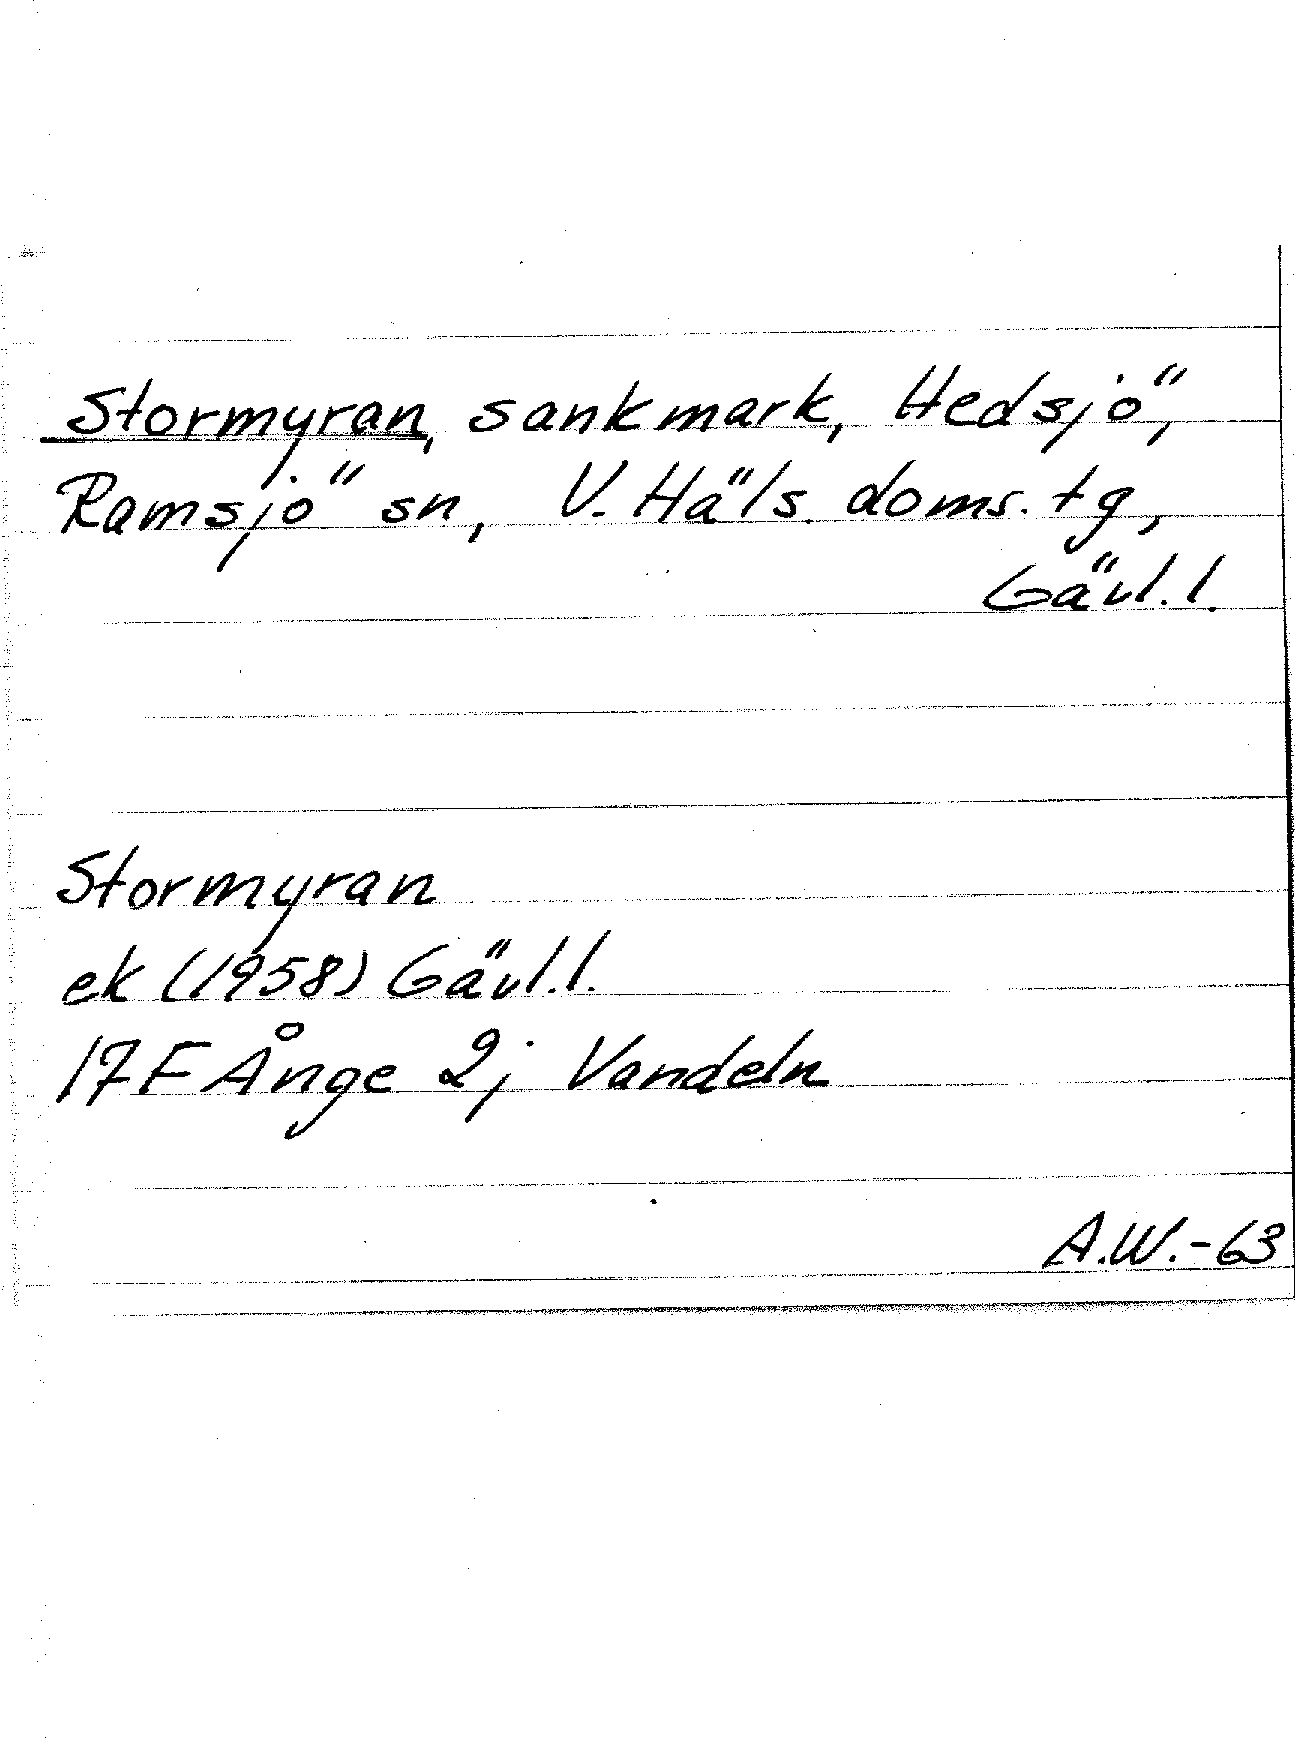 Stormyran, sankmark, Hedsjö,
Ramsjö sn, V. Häls. doms. tg,
Gävl. l.
Stormyran
ek (1958) Gävl. l.
17F Ånge 2j Vandeln
A.W.-63